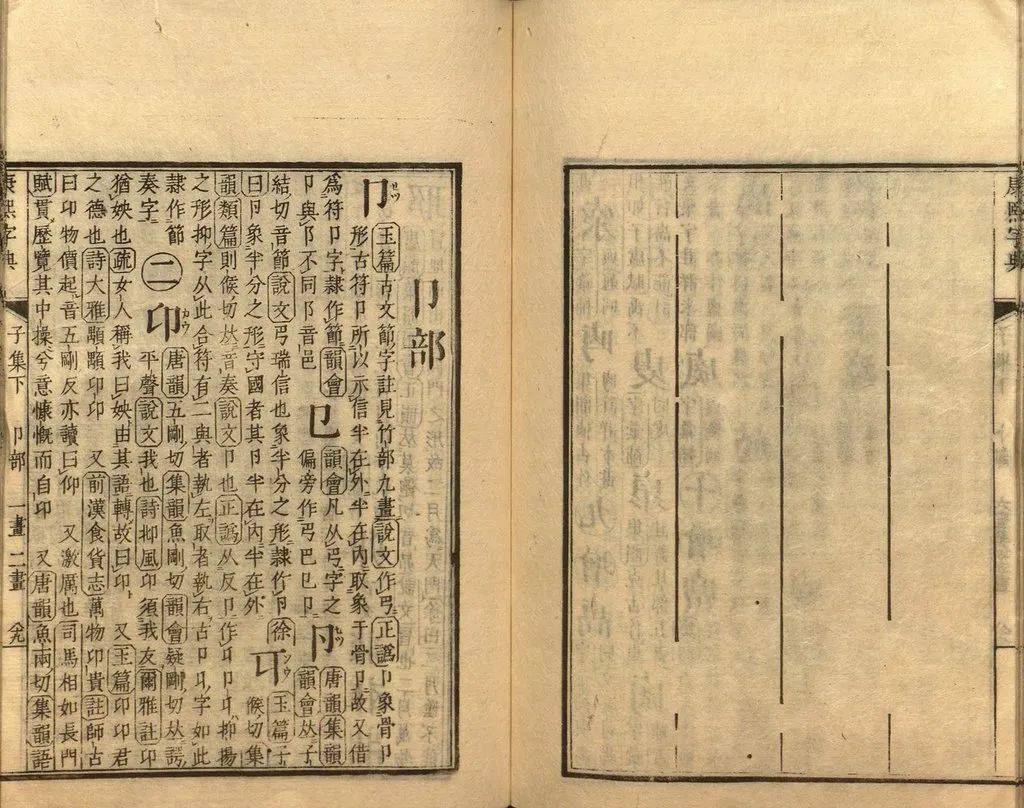 卩部
卩 セツ 玉篇古文節字註見竹部九畫說文作㔾正譌卩象骨卩
形古符卩所以示信半在外半在內取象于骨卩故又借
爲符卩字隷作節韻會
卩與阝不同阝音邑
㔾 韻會凡从㔾字之
偏旁作㔾巴㔾卩
卪 セツ 唐韻集韻
韻會𠀤子
結切音節說文㔾瑞信也象半分之形隷作卩徐
曰卩象半分之形守國者其卩半在內半在外
𠨎 ソウ 玉篇子
候切集
韻類篇則候切𠀤音奏說文卩也正譌从反卩作𠨎卩𠨎抑揚
之形抑字从此合符有二與者執左取者執右古卩𠨎字如此
隷作節
奏字
二
卬 カウ 唐韻五剛切集韻魚剛切韻會疑剛切𠀤諤
平聲說文我也詩邶風卬須我友爾雅註卬
猶姎也疏女人稱我曰姎由其語轉故曰卬 又玉篇卬卬君
之德也詩大雅顒顒卬卬 又前漢食貨志萬物卬貴註師古
曰卬物價起音五剛反亦讀曰仰 又激厲也司馬相如長門
賦貫歷覽其中操兮意慷慨而自卬 又唐韻魚兩切集韻語
康熙字典 子集下 卩部 一畫 二畫